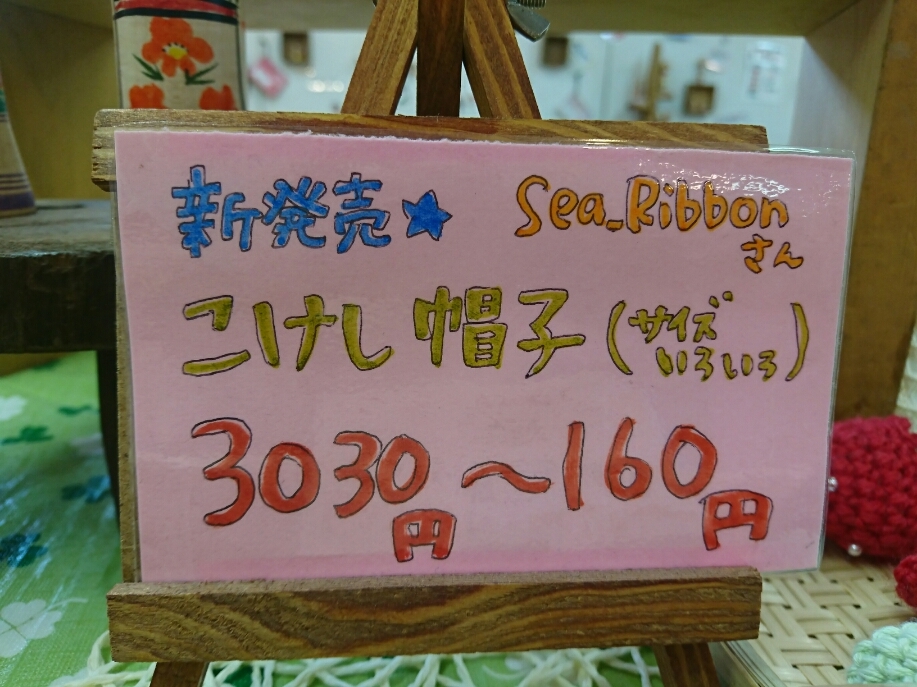 新発売★ Sea_Ribbon
さん
こけし帽子(サイズ
いろいろ)
3030円~160円